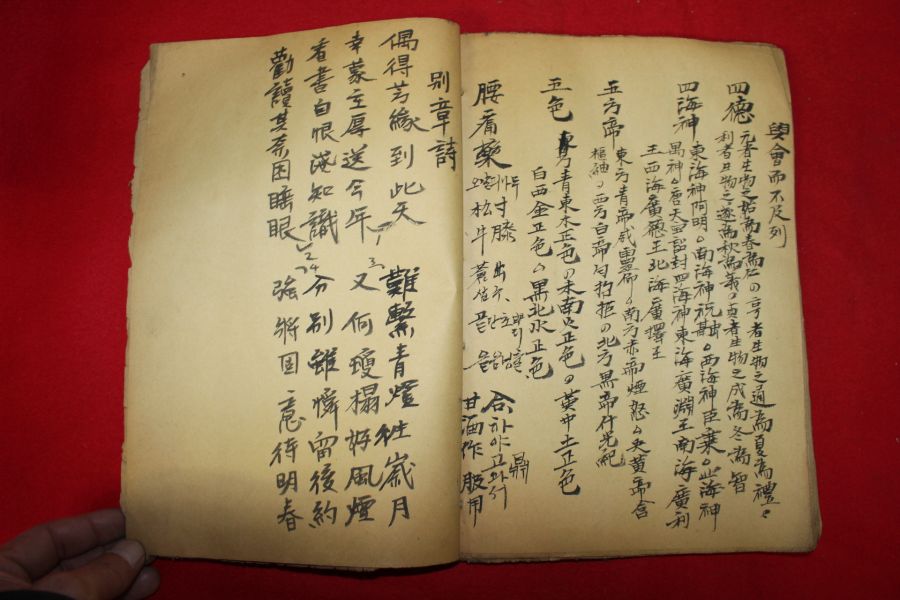 與會而不足列
四德 元者生物之始為春為仁 亨者生物之通為夏為禮々
利者生物之遂為秋為義 貞者生物之成為冬為智
四海神 東海神阿明 南海神祝融 西海神巨乘 北海神
禺神 唐天宝詔封四海神東海廣淵王南海廣利
王西海廣德王北海廣擇王
五方帝 東方青帝威靈仰 南方赤帝煙怒 央黃帝含
樞紐 西方白帝句招拒 北方黑帝什光紀
五色 東方青東木正色 朱南火正色 黃中土正色
白西金正色 黑北水正色
腰痛藥 松寸膝
牛
合하야고와서
甘酒作服用
別章詩
偶得芳緣到此天 難繫青燈徃歲月
幸蒙主厚送今年 又何瓊榻好風煙
看書自恨淺知識 分別雖憐留後約
勸讀其奈困睡眼 強將固意待明春